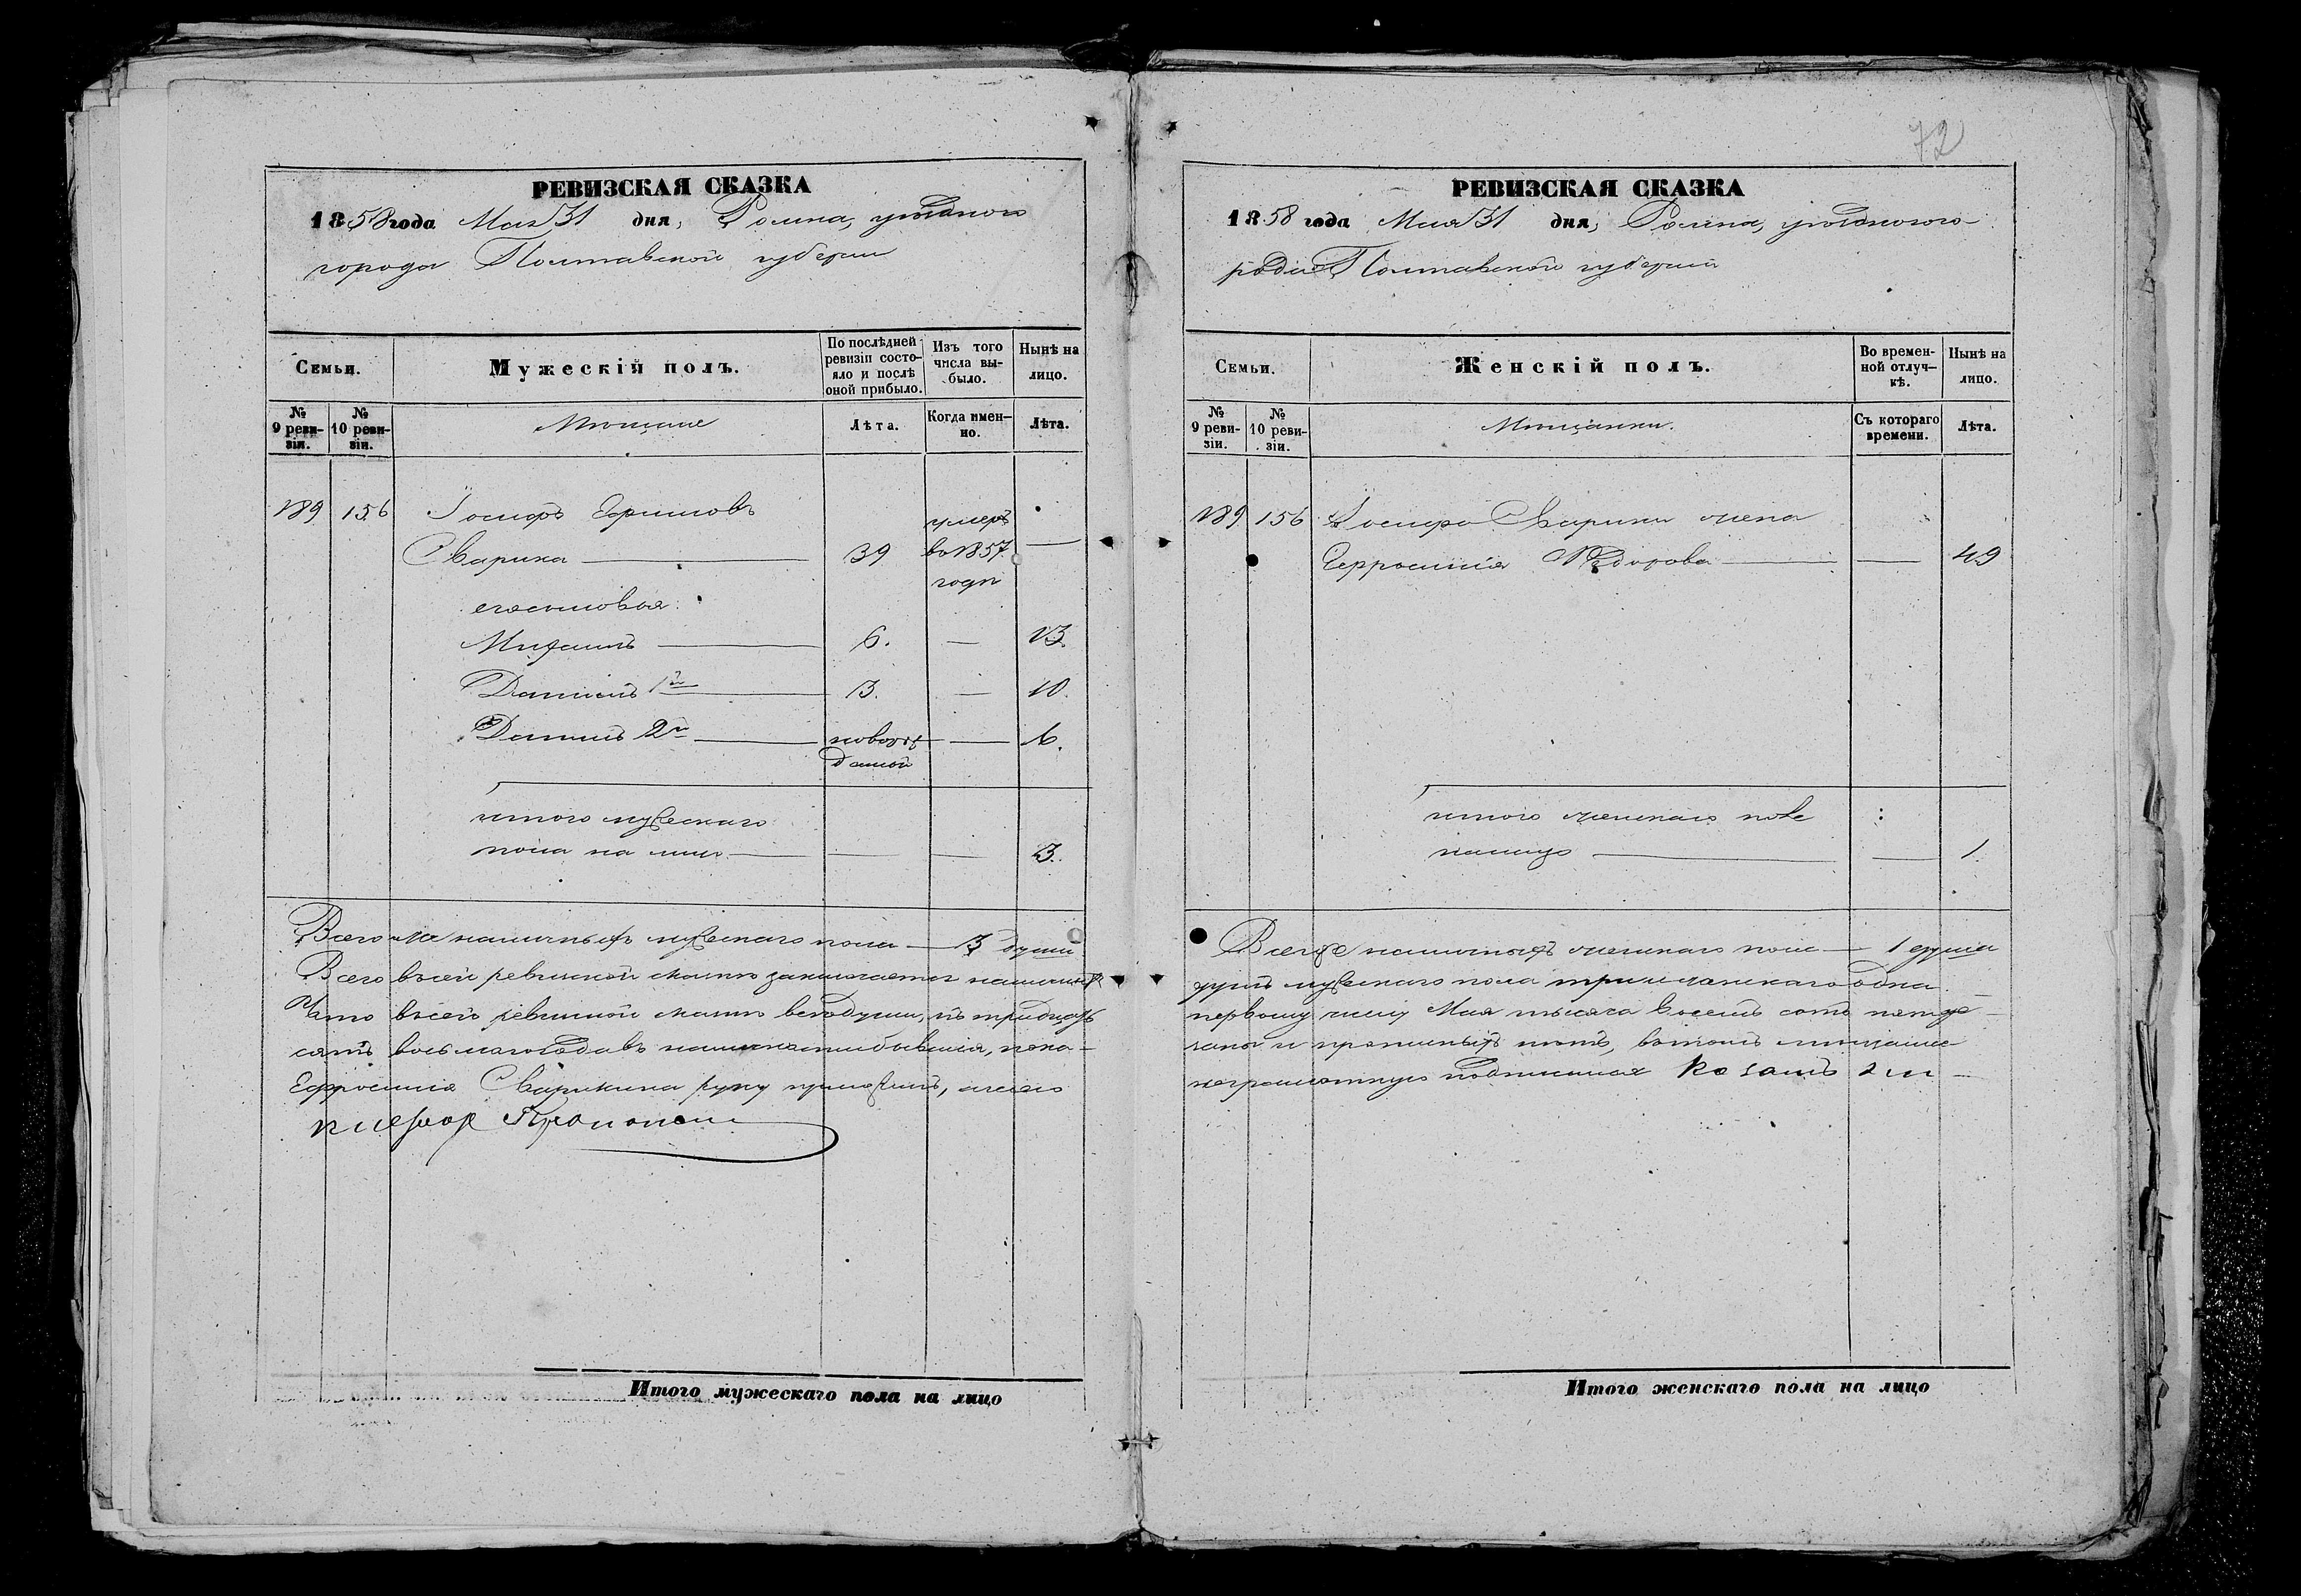 РЕВИЗСКАЯ СКАЗКА
1858 года Мая 31 дня, Ромна, уѣзднаго
города Полтавской губерніи
Семьи.
Мужескій полъ.
По послѣдней ревизіи состояло и послѣ оной прибыло.
Изъ того числа выбыло.
Нынѣ на лицо.
№ 9 ревизіи.
№ 10 ревизіи.
Мѣщане
Лѣта.
Когда именно.
Лѣта.
189 156 Іосифъ Ефимовъ
Сварика 39 умеръ во 1857 году
его сыновья:
Михаилъ 6. 13.
Даниилъ 1й 3. 10.
Даниилъ 2й новорожденной 6.
итого мужескаго
пола на лицо 3.
Всего же наличныхъ мужескаго пола 3 души
Всего всей ревизской сказкѣ заключается наличныхъ
Что всей ревизской сказкѣ всѣ души, къ тридцать
сятъ восьмаго года въ
Ефросинія Сварикина руку приложилъ
72
РЕВИЗСКАЯ СКАЗКА
1858 года Мая 31 дня, Ромна, уѣзднаго го-
рода Полтавской губерніи
Семьи.
Женскій полъ.
Во временной отлучкѣ.
Нынѣ на лицо.
№ 9 ревизіи.
№ 10 ревизіи.
Мѣщанки.
Съ котораго времени.
Лѣта.
189 156 Іосифа Сварики жена
Ефросинія Федорова 49
итого женскаго пола
на лицо 1.
Всего же наличныхъ женскаго пола 1 душа
душъ мужескаго пола три и женскаго одна.
первому числу Мая тысяча восемь сотъ пятьде-
неграмотную подписался
Итого мужескаго пола на лицо
Итого женскаго пола на лицо